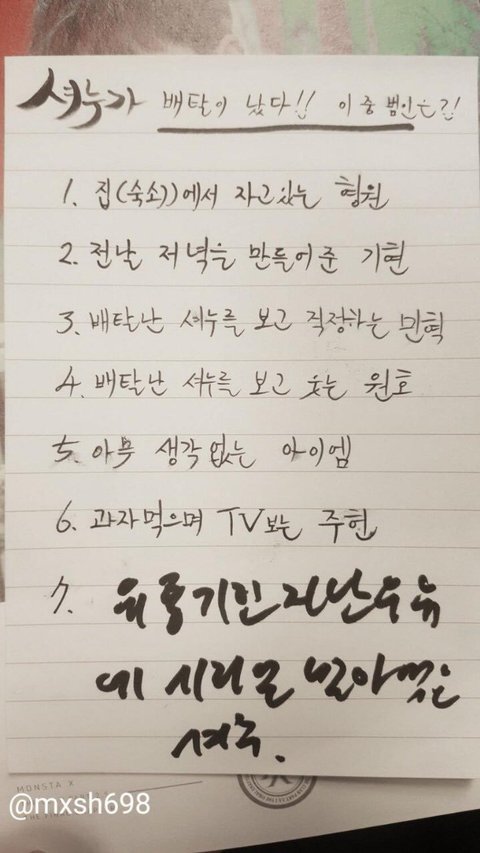 셔누가 배탈이 났다!! 이 중 범인은?!
1. 집(숙소)에서 자고있는 형원
2. 전날 저녁을 만들어준 기현
3. 배탈난 셔누를 보고 걱정하는 민혁
4. 배탈난 셔누를 보고 웃는 원호
5. 아무 생각없는 아이엠
6. 과자먹으며 TV보는 주헌
7. 유통기한지난우유
에 시리얼 말아먹은
셔누.
MONSTA X
@mxsh698